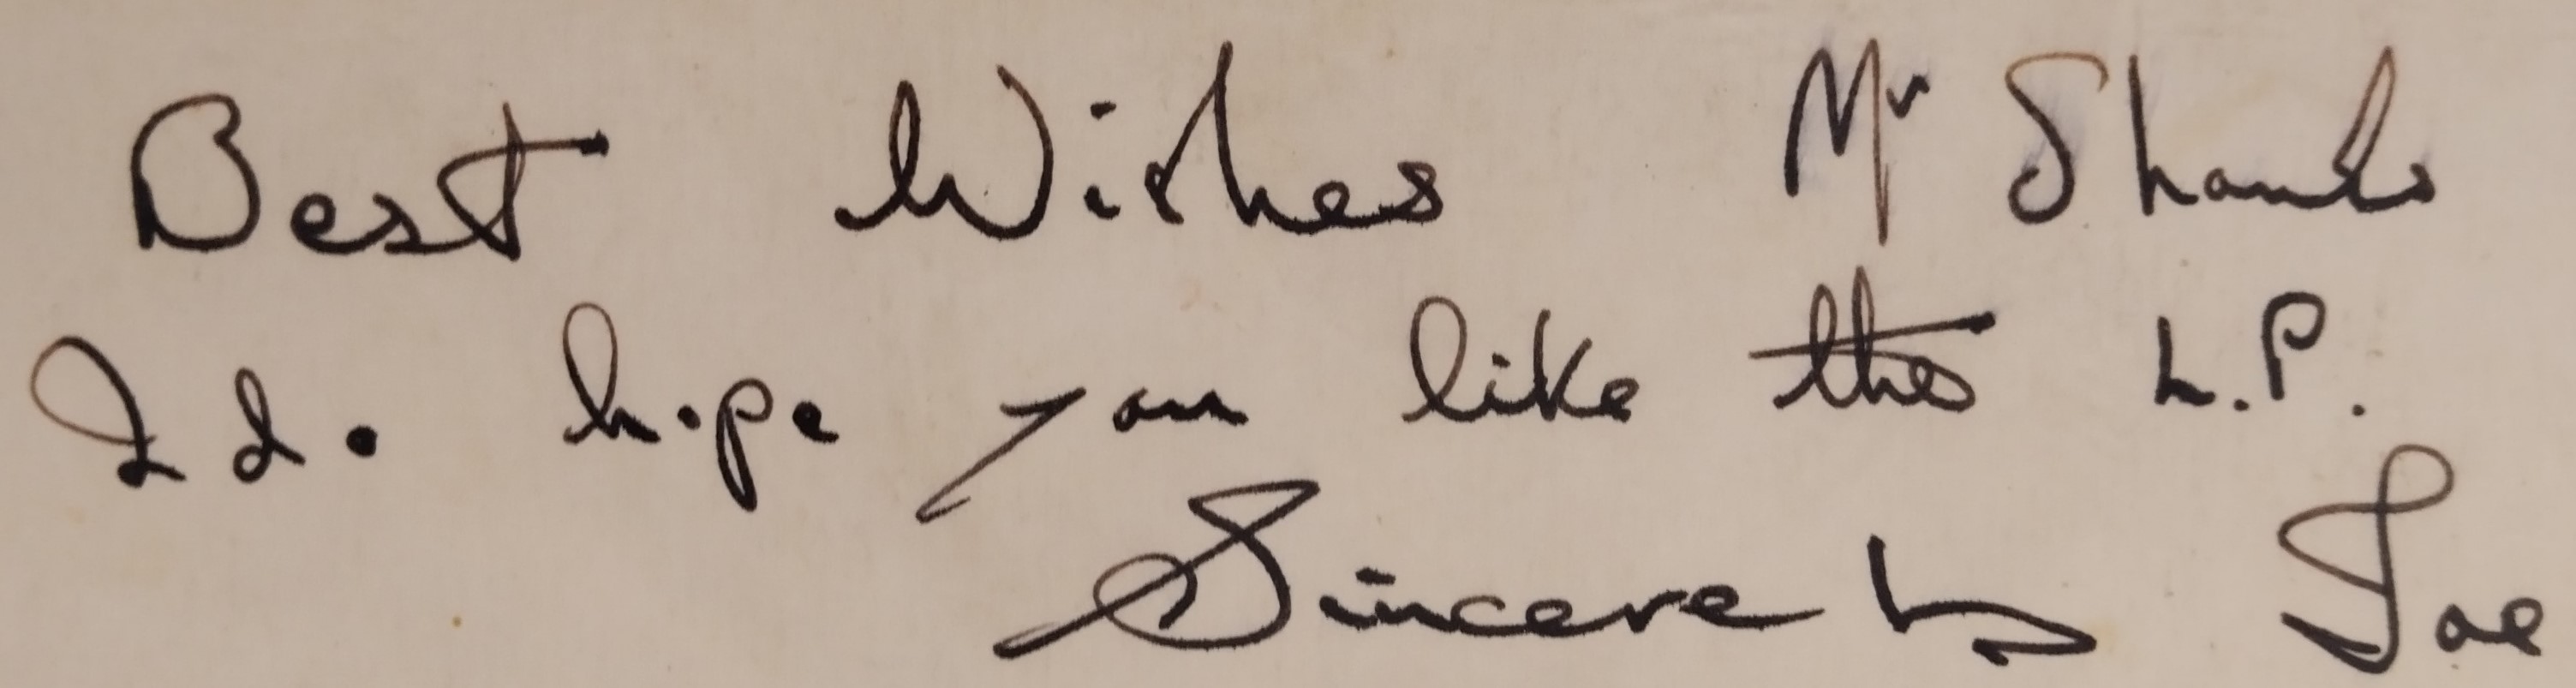 Best Wishes Mr Shanks
I do hope you like the L.P.
Sincerely Joe